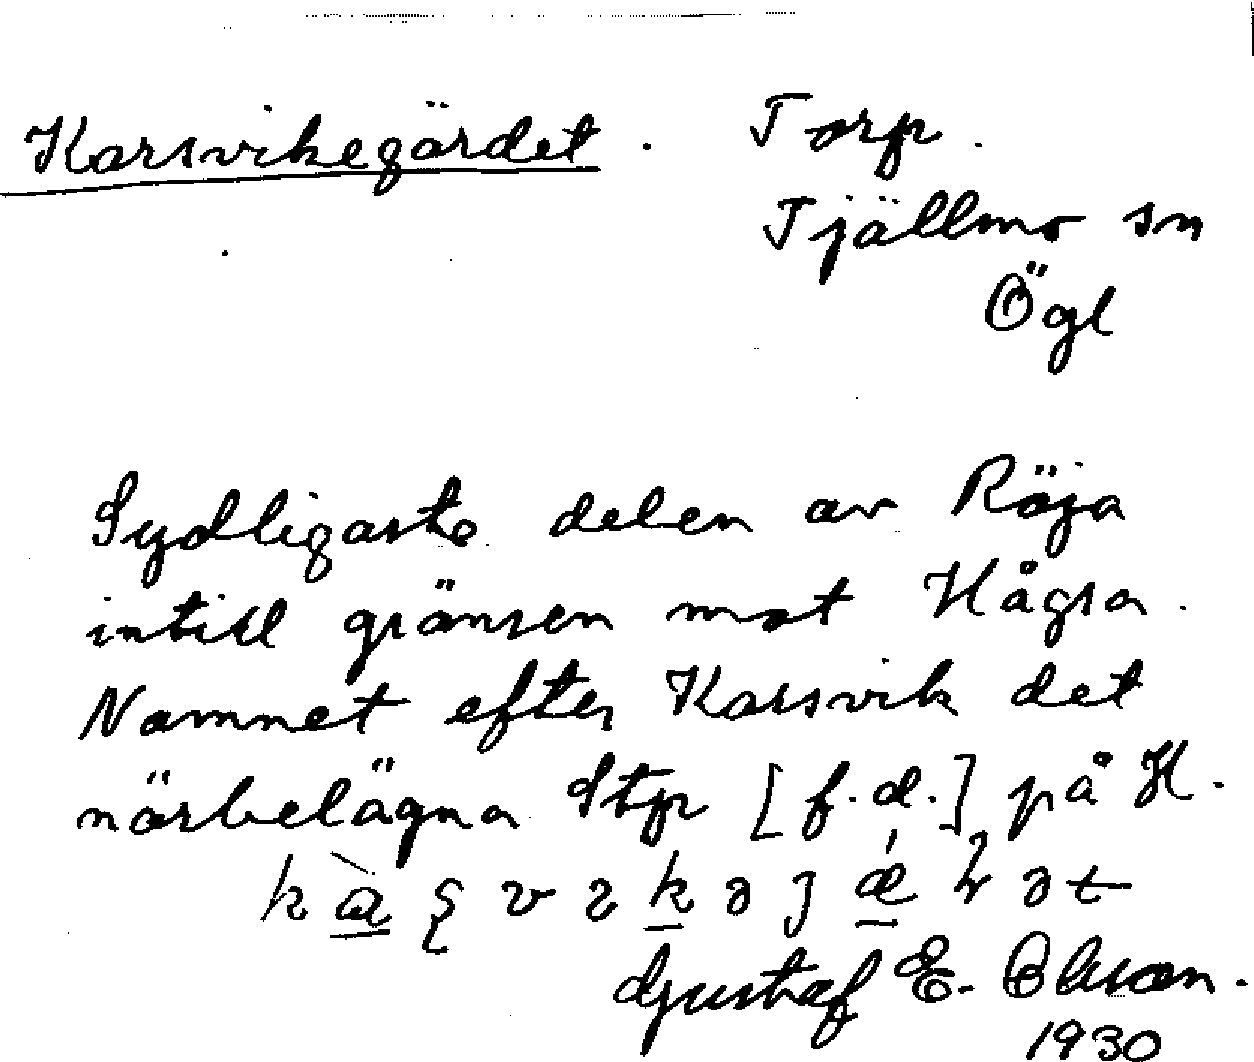 Karsvikegärdet. Torp.
Tjällmo sn
Ögl
Sydligaste delen av Röja
intill gränsen mot Hågra.
Namnet efter Karsvik det
närbelägna Stp [f.d.] på H.
Gustaf E. Olsson.
1930